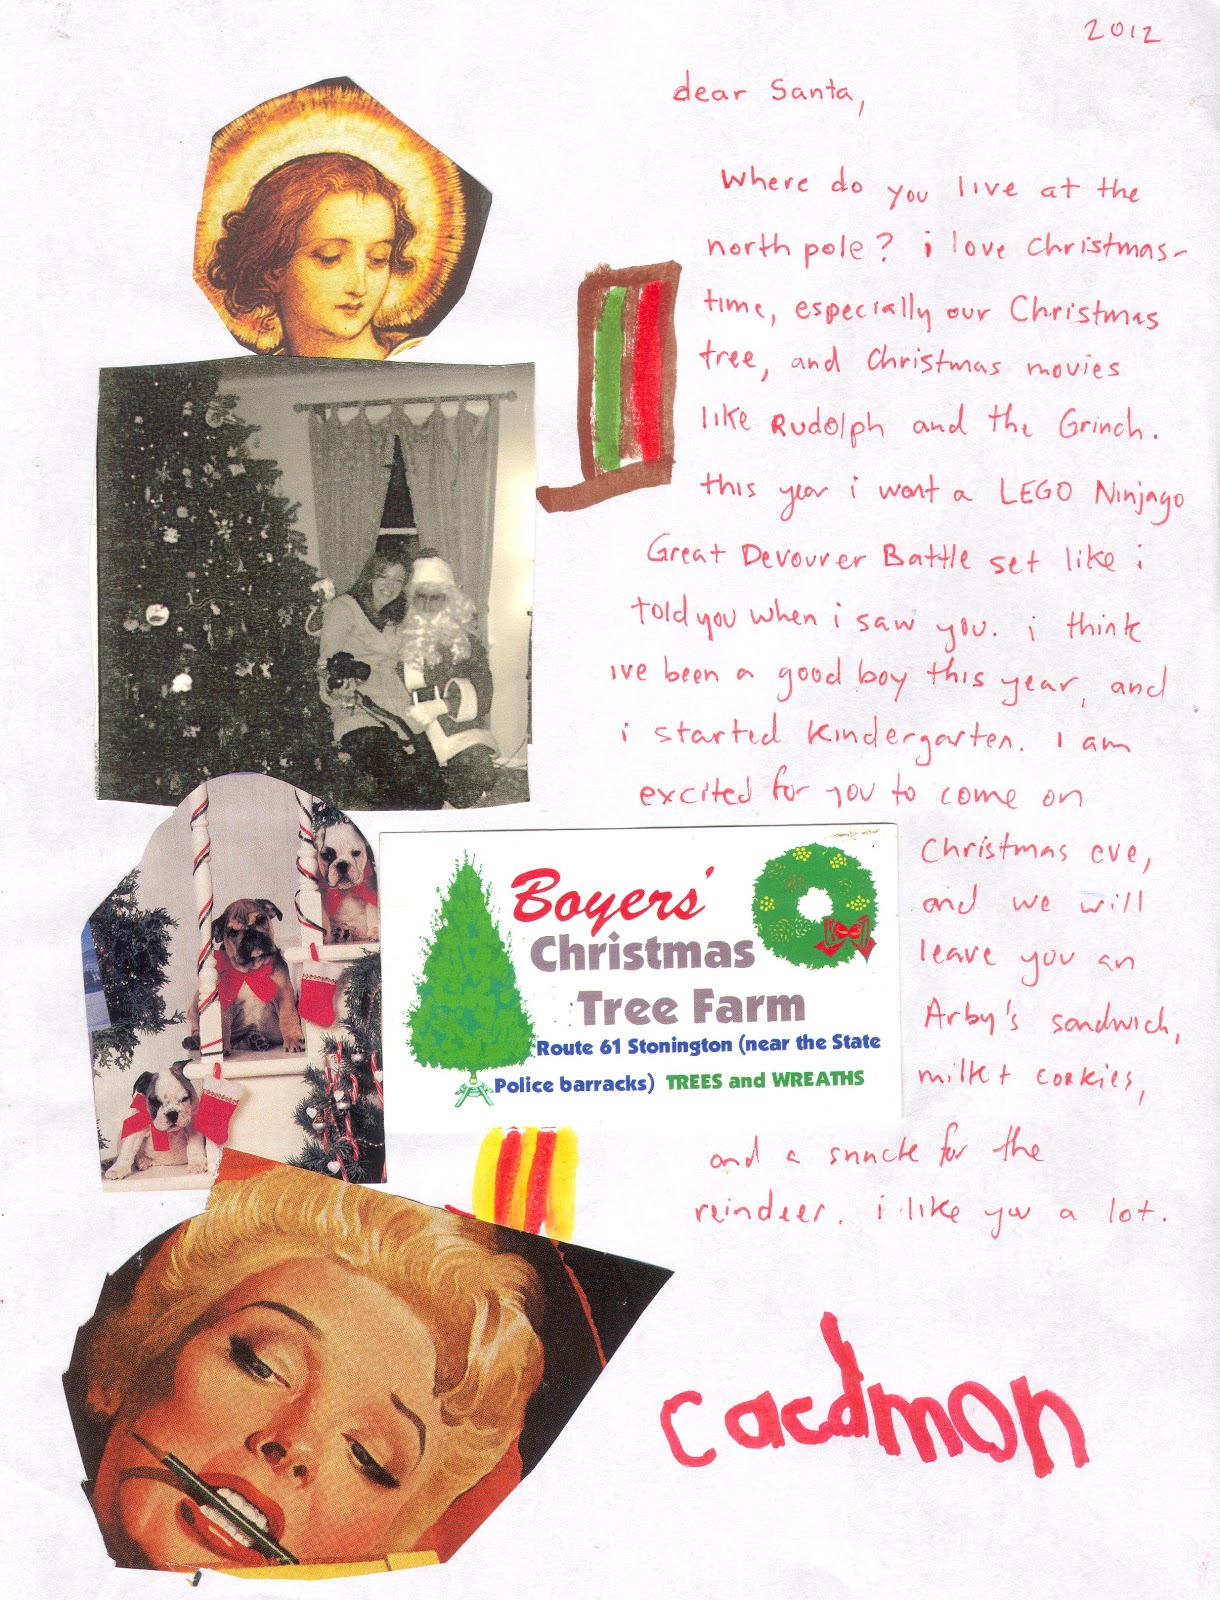 2012
dear Santa,
Where do you live at the
north pole? i love Christmas-
time, especially our Christmas
tree, and Christmas movies
like Rudolph and the Grinch.
this year i want a LEGO Ninjago
Great Devourer Battle set like i
told you when i saw you. i think
ive been a good boy this year, and
i started Kindergarten. I am
excited for you to come on
Christmas eve,
and we will
leave you an
Arby's sandwich,
milk + cookies,
and a snack for the
reindeer. i like you a lot.
Boyers'
Christmas
Tree Farm
Route 61 Stonington (near the State
Police barracks) TREES and WREATHS
caedmon